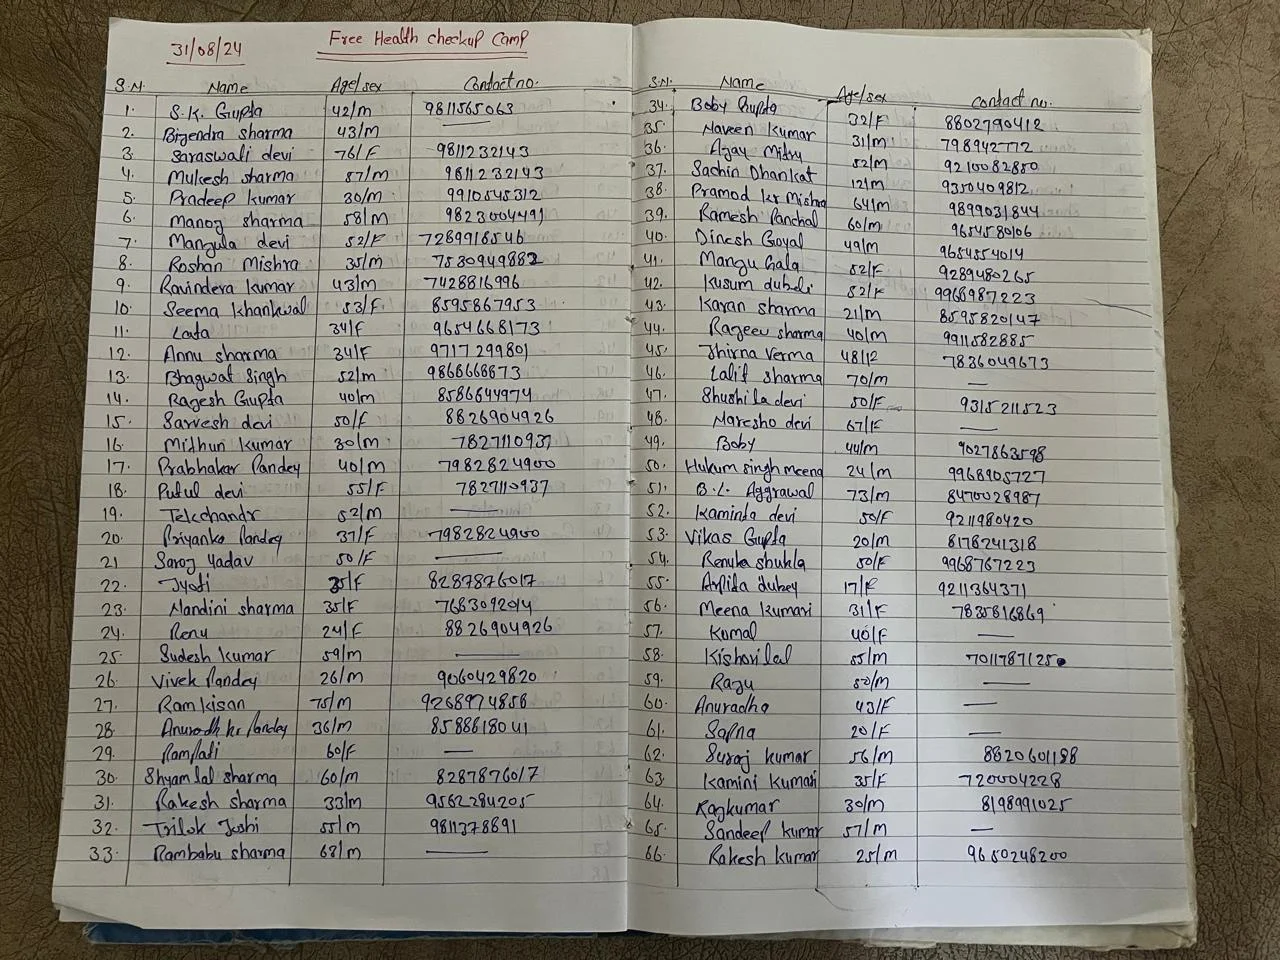 31/08/24 Free Health Checkup Camp
S.N. Name Age/sex Contact no.
1. S.K. Gupta 42/m 9811565063
2. Bijendra sharma 43/m ———
3. Saraswati devi 76/F 9811232143
4. Mukesh sharma 57/m 9811232143
5. Pradeep kumar 30/m 9910545312
6. Manoj sharma 58/m 9823004491
7. Manjula devi 52/F 7289916546
8. Roshan Mishra 35/m 7530949882
9. Ravindera kumar 43/m 7428816996
10. Seema khankwal 53/F 8595867953
11. Lata 34/F 9654668173
12. Annu sharma 34/F 9717299801
13. Bhagwat Singh 52/m 9868668873
14. Rajesh Gupta 40/m 8586844974
15. Sarvesh devi 50/F 8826904926
16. Mithun kumar 30/m 7827110937
17. Prabhakar Pandey 40/m 7982824900
18. Putul devi 55/F 7827110937
19. Tekchandr 52/m ———
20. Priyanka Pandey 37/F 7982824900
21 Saroj yadav 50/F ———
22. Jyoti 35/F 8287876017
23. Nandini sharma 35/F 7683092014
24. Renu 24/F 8826904926
25. Sudesh kumar 59/m ———
26. Vivek Pandey 26/m 9060429820
27. Ramkisan 75/m 9268974858
28. Anurodh kr Pandey 36/m 8588818041
29. Rampati 60/F ——
30. Shyam lal sharma 60/m 8287876017
31. Rakesh sharma 33/m 9562284205
32. Trilok Joshi 55/m 9811378891
33. Rambabu sharma 68/m ———
S.N. Name Age/sex contact no.
34. Boby Gupta 32/F 8802790412
35. Naveen kumar 31/m 798942772
36. Ajay Mitry 52/m 9210082850
37. Sachin Dhankat 12/m 9350409812
38. Pramod kr Mishra 64/m 9899031844
39. Ramesh Panchal 60/m 9654580106
40. Dinesh Goyal 49/m 9654554014
41. Manju bala 52/F 9289480265
42. Kusum dubeli 52/F 9968987223
43. Karan sharma 21/m 8595820147
44. Rajeev sharma 40/m 9911582885
45. Jhirna verma 48/12 7836049673
46. Lalit sharma 70/m ——
47. Shushila devi 50/F 9315211523
48. Maresho devi 67/F ——
49. Boby 44/m 9027863598
50. Hukum singh meena 24/m 9968905727
51. B.L. Aggrawal 73/m 8470028987
52. Kaminta devi 50/F 9211980420
53. Vikas Gupta 20/m 8178241318
54. Renuka shukla 50/F 9968767223
55. Arfida dubey 17/F 9211364371
56. Meena kumari 31/F 7835816869
57. Komal 40/F ——
58. Kishorilal 55/m 7011787125
59. Raju 50/m ———
60. Anuradha 43/F
61. Sapna 20/F ——
62. Suraj kumar 56/m 8820601188
63. Kamini kumari 35/F 720004228
64. Rajkumar 30/m 8198991025
65. Sandeep kumar 57/m ——
66. Rakesh kumar 25/m 9650248200